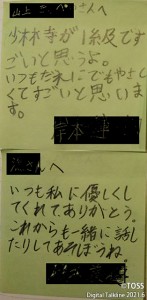 さんへ
少林寺が1級です
ごいと思うよ。
いつもだれにでもやさし
くてすごいと思いま
す。
岸本
さんへ
いつも私に優しくし
てくれてありがとう。
これからも一緒に話し
たりしてあそぼうね
©TOSS
Digital Talkline 2021.6